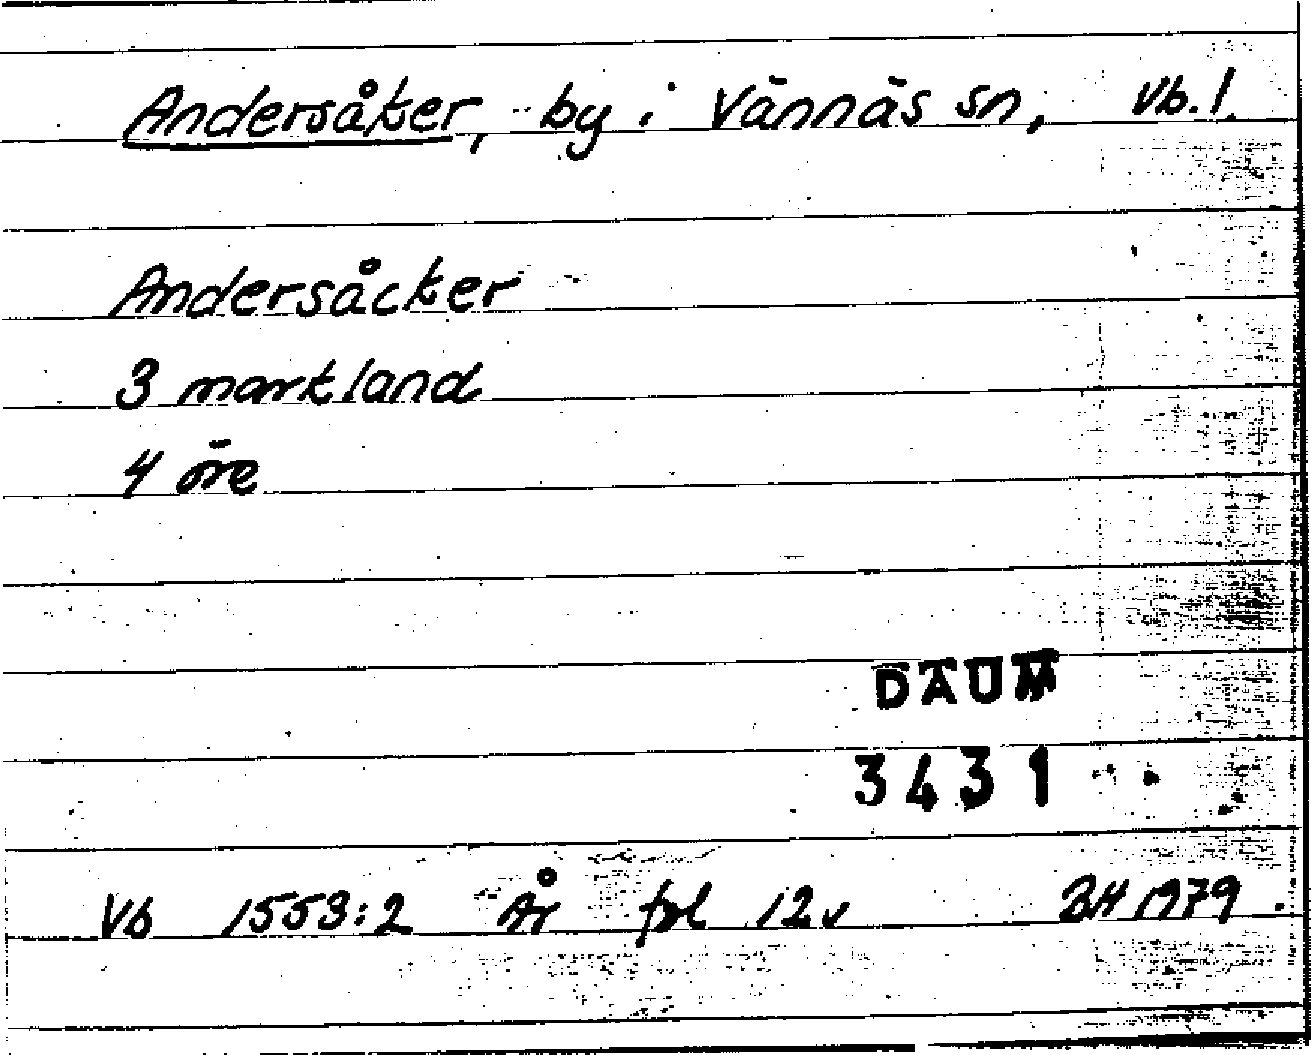 Andersåker, by i Vännäs sn, Vb. l.
Andersåcker
3 markland
4 öre
DAUM
3431
Vb 1553:2 År fol 12v BH 1979